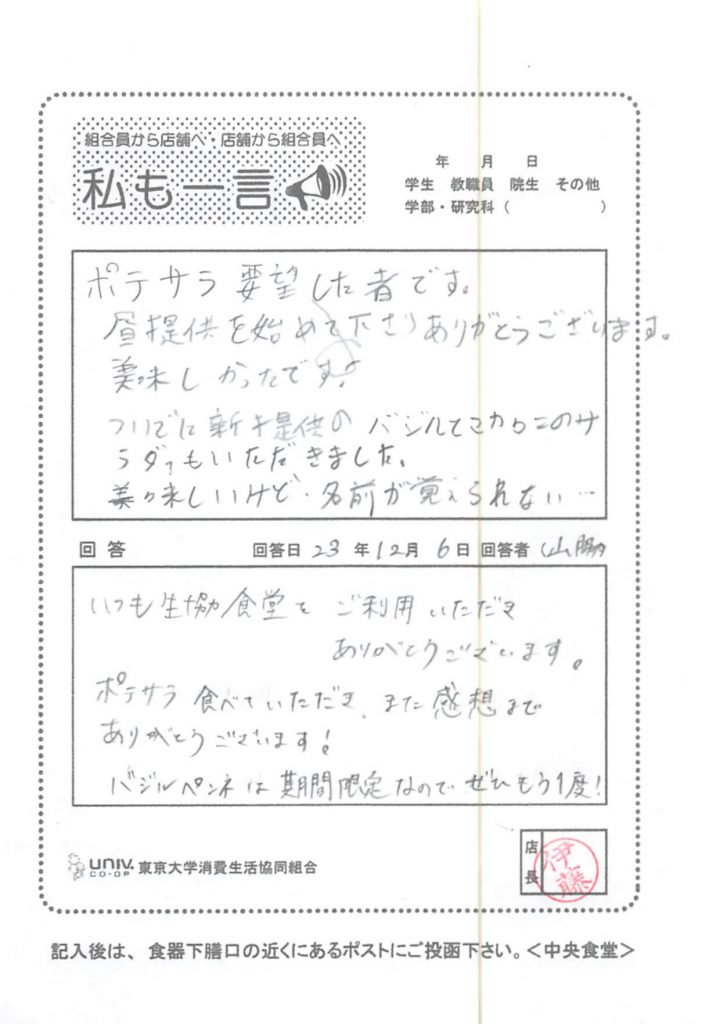 組合員から店舗へ・店舗から組合員へ
私も一言
年 月 日
学生 教職員 院生 その他
学部・研究科（ ）
ポテサラ要望した者です。
昼提供を始めて下さりありがとうございます。
美味しかったです!
ついでに新才提供のバジルとマカロニのサ
ラダもいただきました。
美味しいけど、名前が覚えられない…
回答 回答日 23 年 12 月 6 日 回答者 (山脇)
いつも生協食堂を ご利用いただき
ありがとうございます。
ポテサラ食べていただき、また感想まで
ありがとうございます!
バジルペンネは期間限定なのでぜひもう1度!
UNIV. CO-OP 東京大学消費生活協同組合
店長 伊藤
記入後は、食器下膳口の近くにあるポストにご投函下さい。＜中央食堂＞